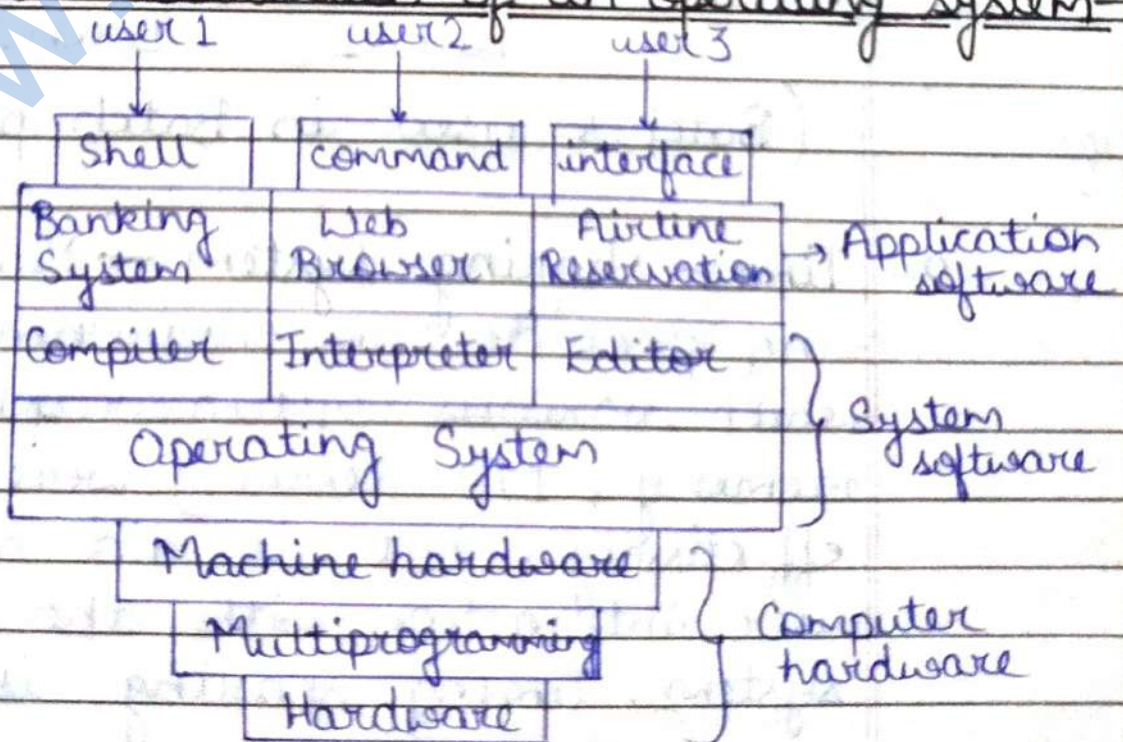 of an operating system
user 1 user 2 user 3
Shell command interface
Banking System Web Browser Airline Reservation → Application software
Compiler Interpreter Editor
Operating System
System software
Machine hardware
Multiprogramming
Computer hardware
Hardware